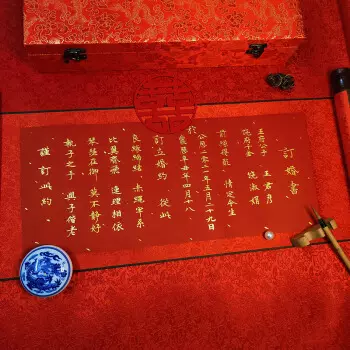 訂婚書
王府公子 王君勇
施府千金 施淑娟
前緣得訂 情定今生
公曆二零二一年五月二十九日
農曆辛丑年四月十八
於
訂立婚約 從此
良緣締結 赤繩早系
比翼齊飛 連理相依
琴瑟在御 莫不靜好
執子之手 與子偕老
謹訂此約